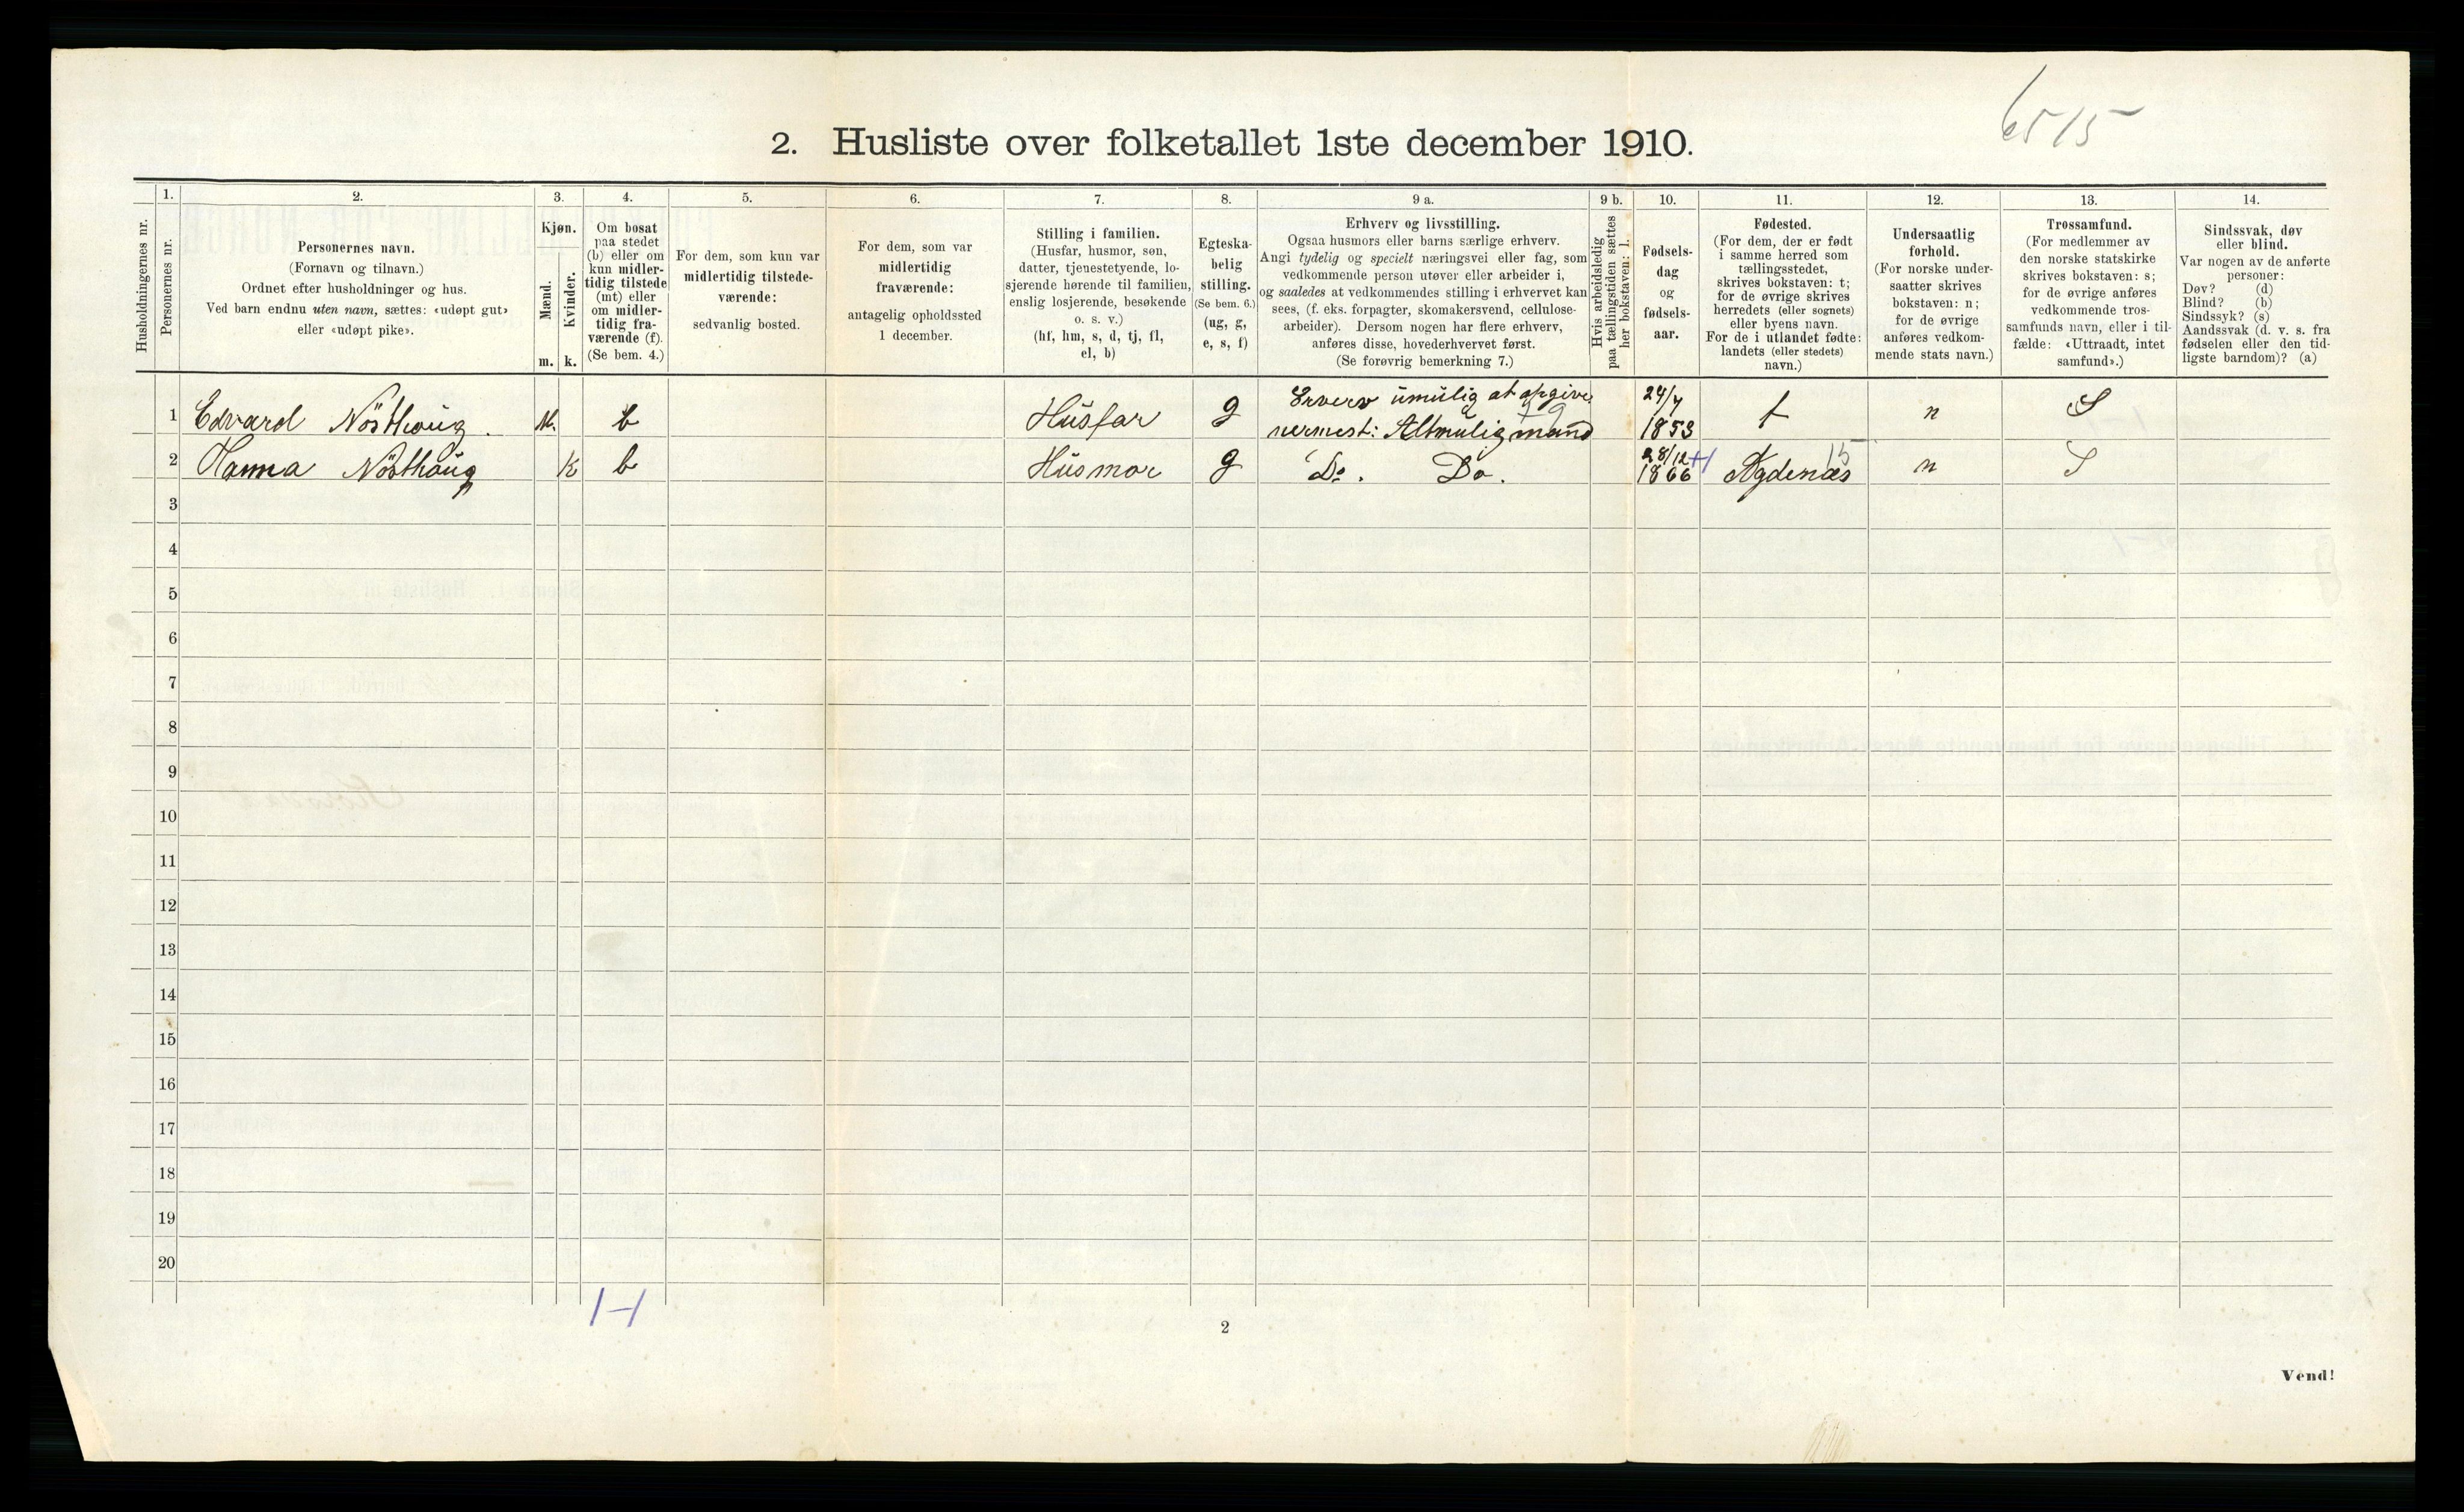 6515
2. Husliste over folketallet 1ste december 1910.
Husholdningernes nr.
1.
Personernes nr.
2.
Personernes navn.
(Fornavn og tilnavn.)
Ordnet efter husholdninger og hus.
Ved barn endnu uten navn, sættes: «udøpt gut»
eller «udøpt pike».
3.
Kjøn.
Mænd.
m.
Kvinder.
k.
4.
Om bosat
paa stedet
(b) eller om
kun midler-
tidig tilstede
(mt) eller
om midler-
tidig fra-
værende (f).
(Se bem. 4.)
5.
For dem, som kun var
midlertidig tilstede-
værende:
sedvanlig bosted.
6.
For dem, som var
midlertidig
fraværende:
antagelig opholdssted
1 december.
7.
Stilling i familien.
(Husfar, husmor, søn,
datter, tjenestetyende, lo-
sjerende hørende til familien,
enslig losjerende, besøkende
o. s. v.)
(hf, hm, s, d, tj, fl,
el, b)
8.
Egteska-
belig
stilling.
(Se bem. 6.)
(ug, g,
e, s, f)
9 a.
Erhverv og livsstilling.
Ogsaa husmors eller barns særlige erhverv.
Angi tydelig og specielt næringsvei eller fag, som
vedkommende person utøver eller arbeider i,
og saaledes at vedkommendes stilling i erhvervet kan
sees, (f. eks. forpagter, skomakersvend, cellulose-
arbeider). Dersom nogen har flere erhverv,
anføres disse, hovederhvervet først.
(Se forøvrig bemerkning 7.)
9 b.
Hvis arbeidsledig
paa tællingstiden sættes
her bokstaven: l.
10.
Fødsels-
dag
og
fødsels-
aar.
11.
Fødested.
(For dem, der er født
i samme herred som
tællingsstedet,
skrives bokstaven: t;
for de øvrige skrives
herredets (eller sognets)
eller byens navn.
For de i utlandet fødte:
landets (eller stedets)
navn.)
12.
Undersaatlig
forhold.
(For norske under-
saatter skrives
bokstaven: n;
for de øvrige
anføres vedkom-
mende stats navn.)
13.
Trossamfund.
(For medlemmer av
den norske statskirke
skrives bokstaven: s;
for de øvrige anføres
vedkommende tros-
samfunds navn, eller i til-
fælde: «Uttraadt, intet
samfund».)
14.
Sindssvak, døv
eller blind.
Var nogen av de anførte
personer:
Døv? (d)
Blind? (b)
Sindssyk? (s)
Aandssvak (d. v. s. fra
fødselen eller den tid-
ligste barndom)? (a)
1 Edvard Nösthoug. M. b Husfar g Erverv umulig at opgive. nermest: Altmulig mand 24/7 1853 t n S
2 Hanna Nösthoug K b Husmor g Do. Do. 28/12 1866 Agdenæs 15 n S
3
4
5
6
7
8
9
10
11
12
13
14
15
16
17
18
19
20
2
Vend!